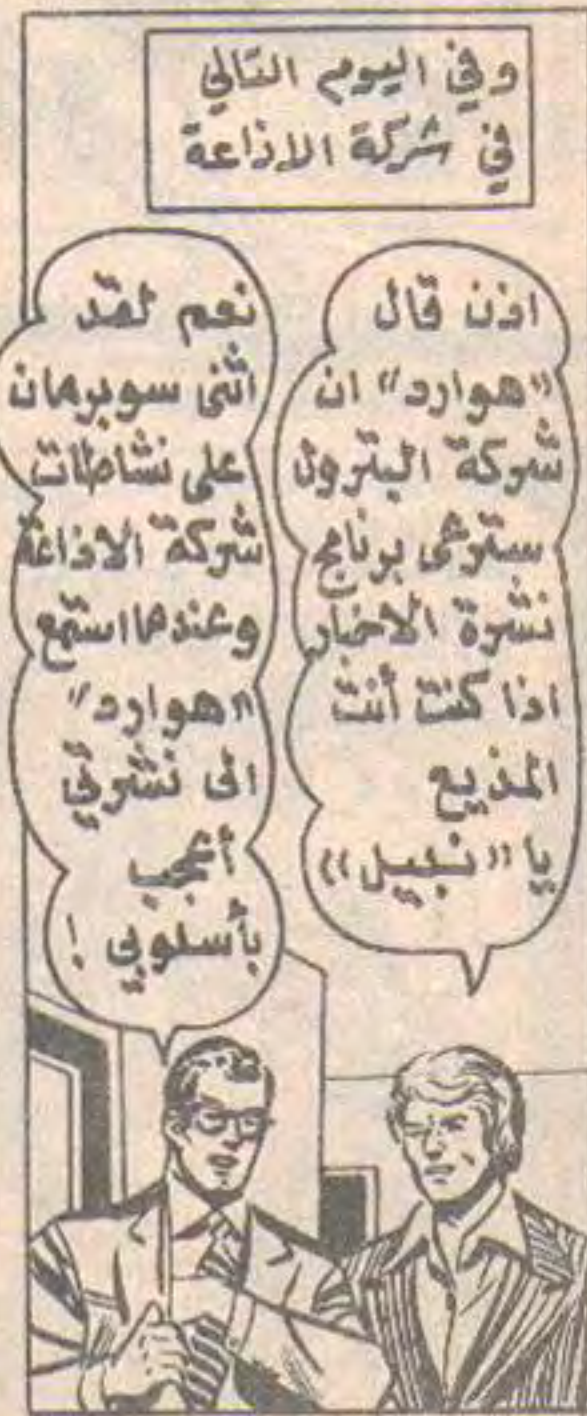 وفي اليوم التالي
في شركة الاذاعة
اذن قال
«هوارد» ان
شركة البترول
سترعى برنامج
نشرة الاخبار
اذا كنت أنت
المذيع
يا «نبيل»
نعم لقد
أثنى سوبرمان
على نشاطات
شركة الاذاعة
وعندما استمع
«هوارد»
الى نشرتي
أعجب
بأسلوبي !